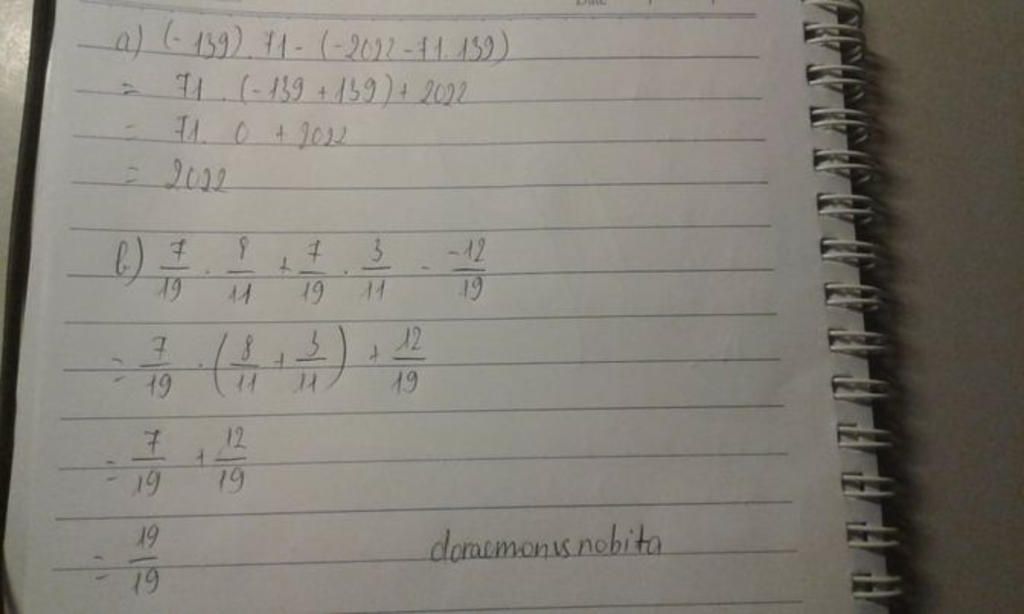 a) (-139) . 71 - (-2022 - 71.139)
= 71 . (-139 + 139) + 2022
= 71 . 0 + 2022
= 2022
b) 7/19 . 8/11 + 7/19 . 3/11 - -12/19
= 7/19 . (8/11 + 3/11) + 12/19
= 7/19 + 12/19
= 19/19
doraemonvsnobita